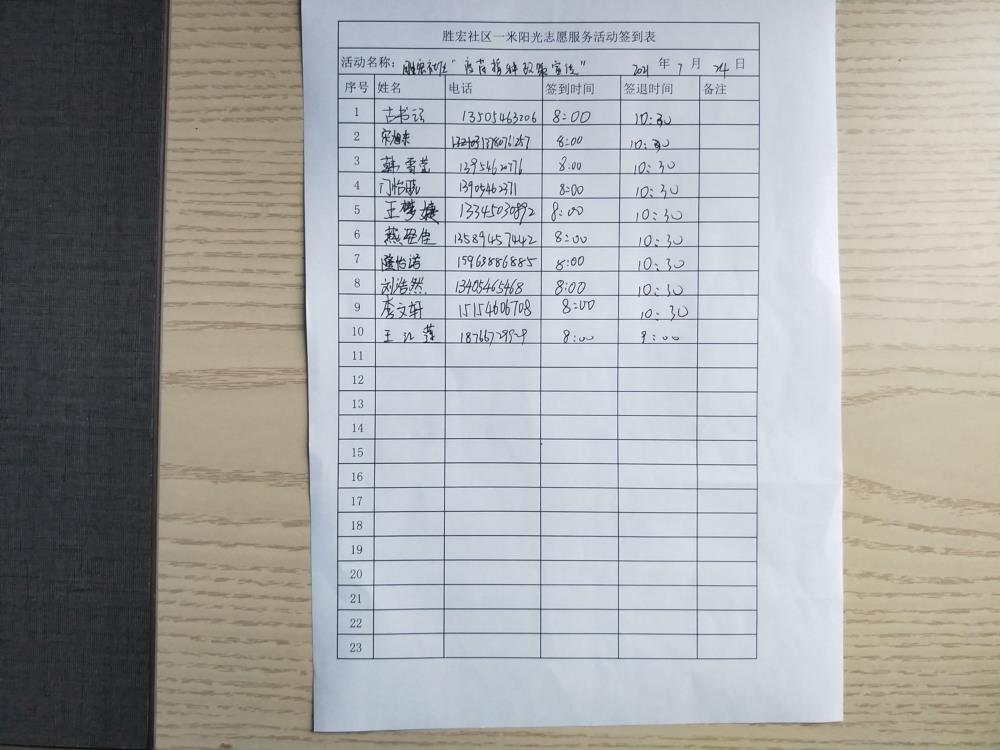 胜宏社区一米阳光志愿服务活动签到表
活动名称: 胜宏社区"疫苗接种政策宣传" 2021 年 7 月 24 日
序号 姓名 电话 签到时间 签退时间 备注
1 古书 13505463206 8:00 10:30
2 8:00 10:30
3 韩雪莹 1395462076 8:00 10:30
4 门怡晓 13905462371 8:00 10:30
5 王梦婕 13345030892 8:00 10:30
6 燕佳 13589457442 8:00 10:30
7 隆怡诺 15963886885 8:00 10:30
8 刘浩然 13405465468 8:00 10:30
9 李文轩 15154606708 8:00 10:30
10 王 江 18766729929 8:00 9:00
11
12
13
14
15
16
17
18
19
20
21
22
23